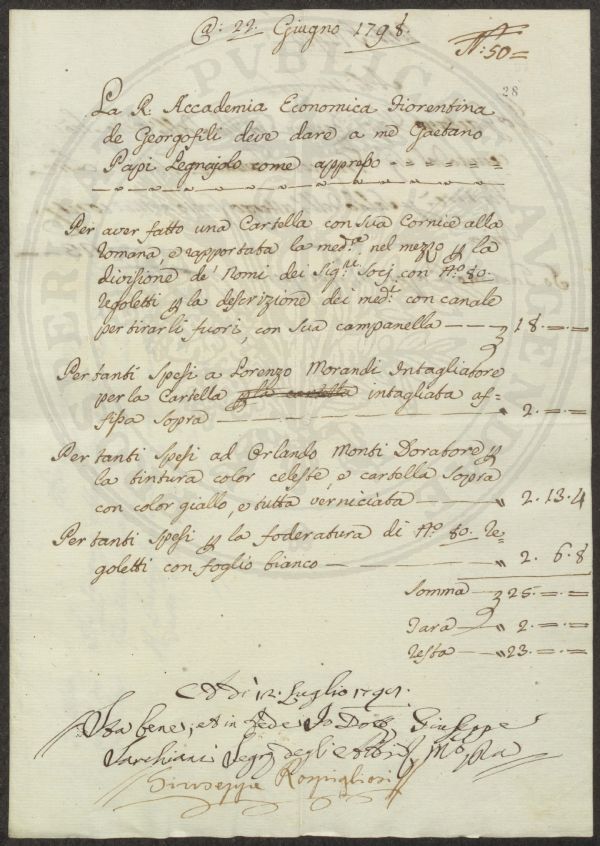 @: 22. Giugno 1798.
N: 50=
28
La R. Accademia Economica Fiorentina
de Georgofili deve dare a me Gaetano
Papi Legnajolo come appreso
Per aver fatto una Cartella con sua Cornice alla
Romana, e rapportata la med.a nel mezzo p la
divisione de' Nomi dei Sig.ri Socj con N.o 80.
Regoletti p la descrizione dei med.i con canale
per tirarli fuori, con sua campanella 18. = =
Per tanti spesi a Lorenzo Morandi Intagliatore
per la Cartella p la cartella intagliata af=
fissa sopra 2. = =
Per tanti spesi ad Orlando Monti Doratore p
la tintura color celeste, e cartella sopra
con color giallo, e tutta verniciata 2.13.4
Per tanti spesi p la foderatura di N.o 80. Re=
goletti con foglio bianco 2. 6.8
Somma 25. = =
Tara 2. = =
Resta 23. = =
Luglio
Sta bene, et in fede Io Dott. Giuseppe
Sarchiani Segr. degli
Giuseppe Rospigliosi